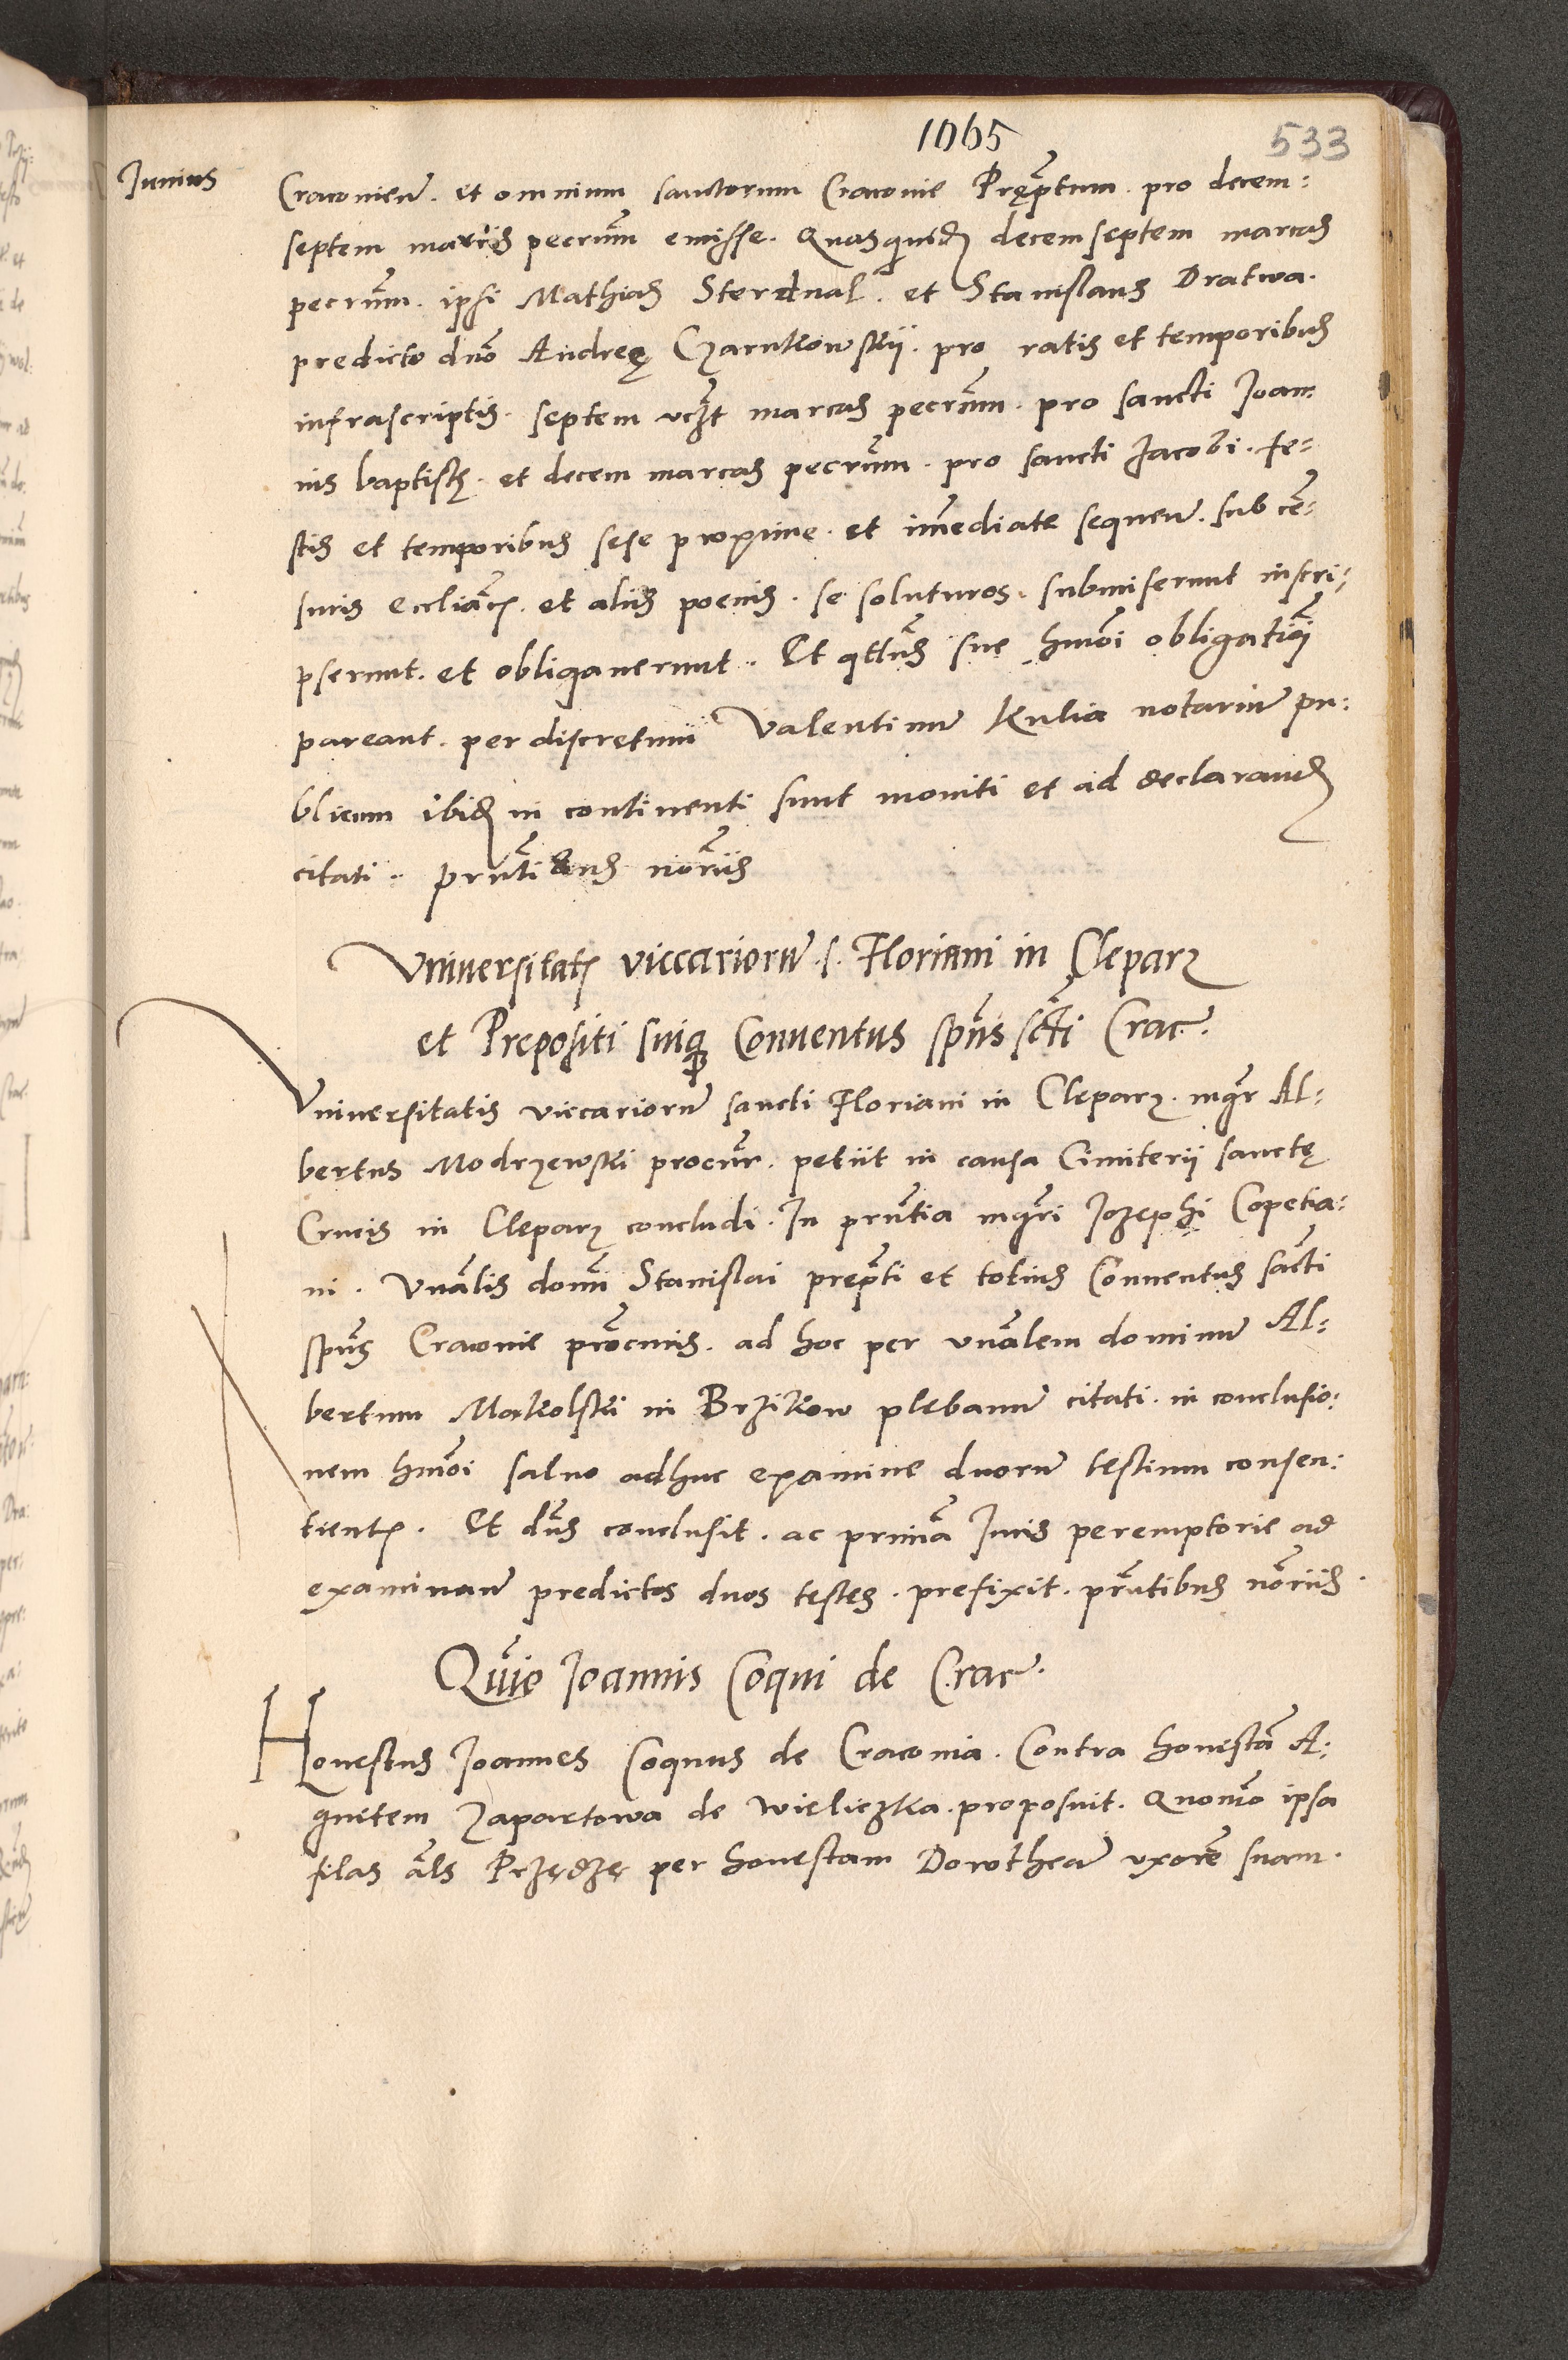 1065
533
Junius
Cracovien̄. et omnium sanctorum Cracovie Pręp̄tum. pro decem=
septem marcis pecun̄m emisse. Quasquid̄ decemseptem marcas
pecun̄m. ipsi Mathias Sterdnal. et Stanislaus Dratwa.
predicto dn̄o Andreę Czarnkowskÿ. pro ratis et temporibus
infrascriptis. septem vcz̄t marcas pecun̄m. pro sancti Joan=
nis baptistę. et decem marcas pecun̄m. pro sancti Jacobi. fe=
stis et temporibus sese proxime. et im̄ediate sequen̄. sub cē=
suris eccliāt̄. et aliis poenis. se soluturos. submiserunt inscri=
pserunt. et obligaverunt. Et qt̄us sue hm̄oi obligatiōi
pareant. per discretum Valentinum Kulia notariū pu=
blicum ibid̄ in continenti sunt moniti et ad declarand̄
citati. prn̄tibus nor̄iis
Universitat̄ viccariorū s. Floriani in Cleparz
et Prepositi suiq̄ Conventus spūs sct̄i Crac̄.
Universitatis viccariorū sancti Floriani in Cleparz. mgr̄ Al=
bertus Modrzewski procur̄. petiit in causa Cimiterii sanctę
Crucis in Cleparz concludi. In prn̄tia mgr̄i Jozephi Copetia=
ni. Vn̄alis domn̄i Stanislai prep̄ti et totius Conventus san̄ti
spūs Cracovie pro̅curis. ad hoc per vn̄alem dominū Al=
bertum Makolski in Brzikow plebanū citati. in conclusio=
nem hm̄oi salvo adhuc examine duorū testium consen=
tient̄. Et dn̄s conclusit. ac primā Juris peremptorie ad
examinanū predictos duos testes. prefixit. prn̄tibus nor̄iis.
Qūie Joannis Coqui de Crac̄.
Honestus Joannes Coquus de Cracovia. Contra honestā A=
gnetem Zapartowa de Wieliczka. proposuit. Quom̄o ipsa
filas al̄s Przędzę per honestam Dorotheā uxorē suam.